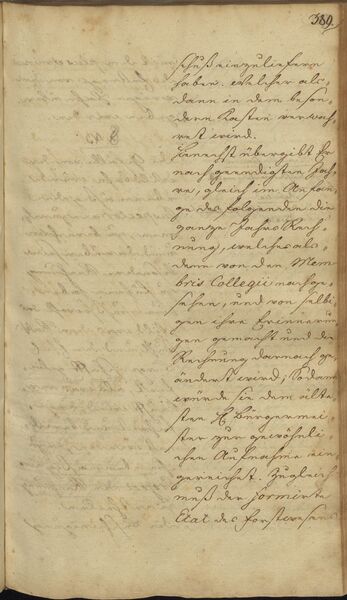 389.
schuß einzuliefern
haben. Welcher als-
dann in dem beson-
dern Kasten verwah-
ret wird.
Hernechst übergibt Er
nach geendigten Jah-
re, gleich im Anfan-
ge des folgenden die
ganze Jahres Rech-
nung, welche als-
denn von den Mem-
bris Collegii nachge-
sehen, und von selbi-
gen ihre Erinnerun-
gen gemacht und die
Rechnung darnach ge-
ändert wird, Sodann
würde sie dem älte-
sten H. Bürgermei-
ster zur gewöhnli-
chen Aufnahme ein-
gereichet. Zugleich
muß der formirte
Etat des Forstwesens